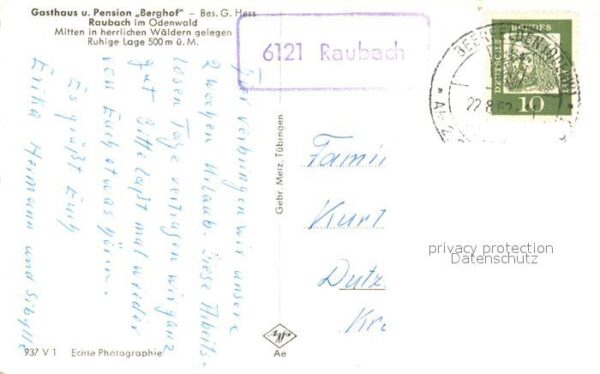 Gasthaus u. Pension „Berghof" – Bes. G. Hess
Raubach im Odenwald
Mitten in herrlichen Wäldern gelegen
Ruhige Lage 500 m ü. M.
6121 Raubach
DEUTSCHE BUNDES
10
22.8.62
Hier verbringen wir unsere
2 Wochen Urlaub. Diese Arbeits-
losen Tage vertragen wir ganz
gut. Bitte laßt mal wieder
von Euch etwas hören.
Es grüßt Euch
Erika Hermann und Sibylle
Gebr. Merz, Tübingen
Famil
Kurt
Dutz
Kr
privacy protection
Datenschutz
Agfa
Ae
937 V 1 Echte Photographie